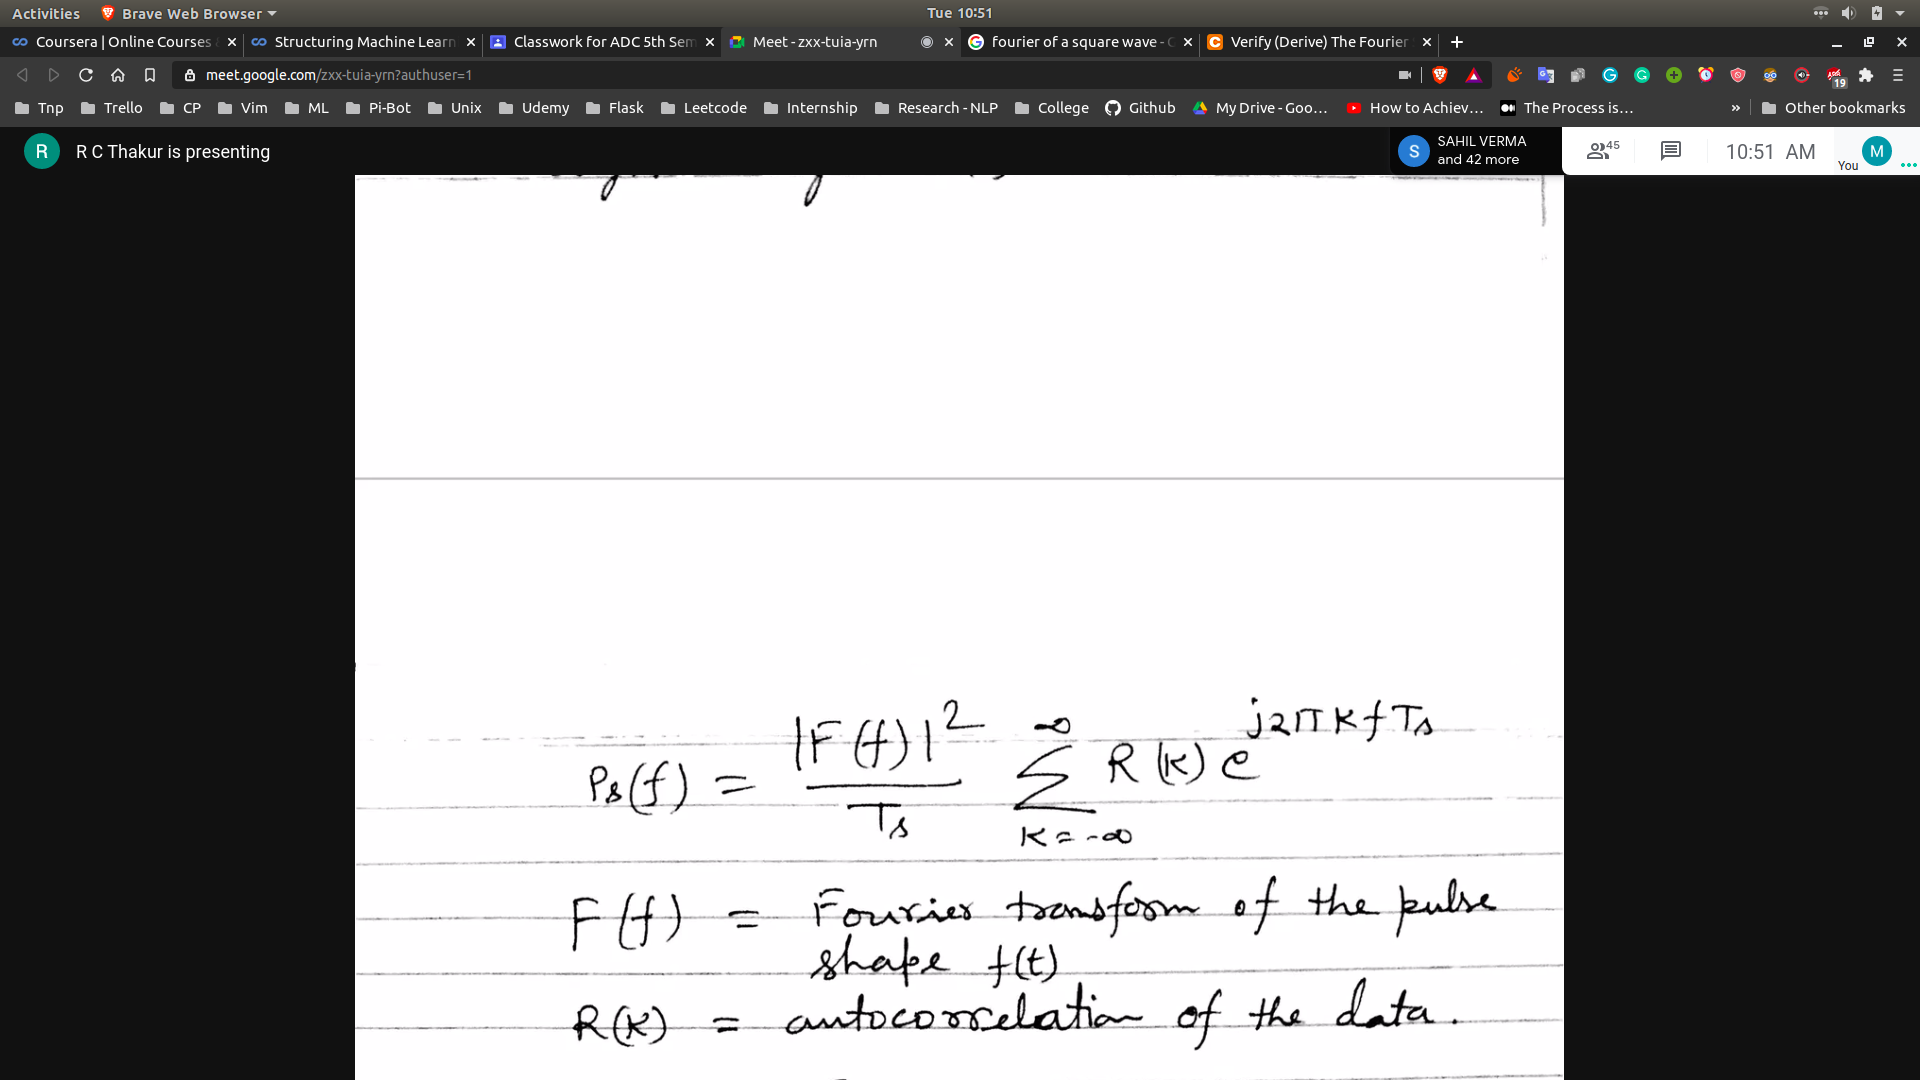 Activities Brave Web Browser Tue 10:51
Coursera | Online Courses Structuring Machine Learn Classwork for ADC 5th Sem Meet - zxx-tuia-yrn fourier of a square wave - Verify (Derive) The Fourier
meet.google.com/zxx-tuia-yrn?authuser=1 19
Tnp Trello CP Vim ML Pi-Bot Unix Udemy Flask Leetcode Internship Research - NLP College Github My Drive - Goo... How to Achiev... The Process is... » Other bookmarks
R R C Thakur is presenting S SAHIL VERMA 45 10:51 AM M
and 42 more You
Ps(f) = |F(f)|² / Ts ∞ Σ K=-∞ R(K) e^j2πKfTs
F(f) = Fourier transform of the pulse
shape f(t)
R(K) = autocorrelation of the data.